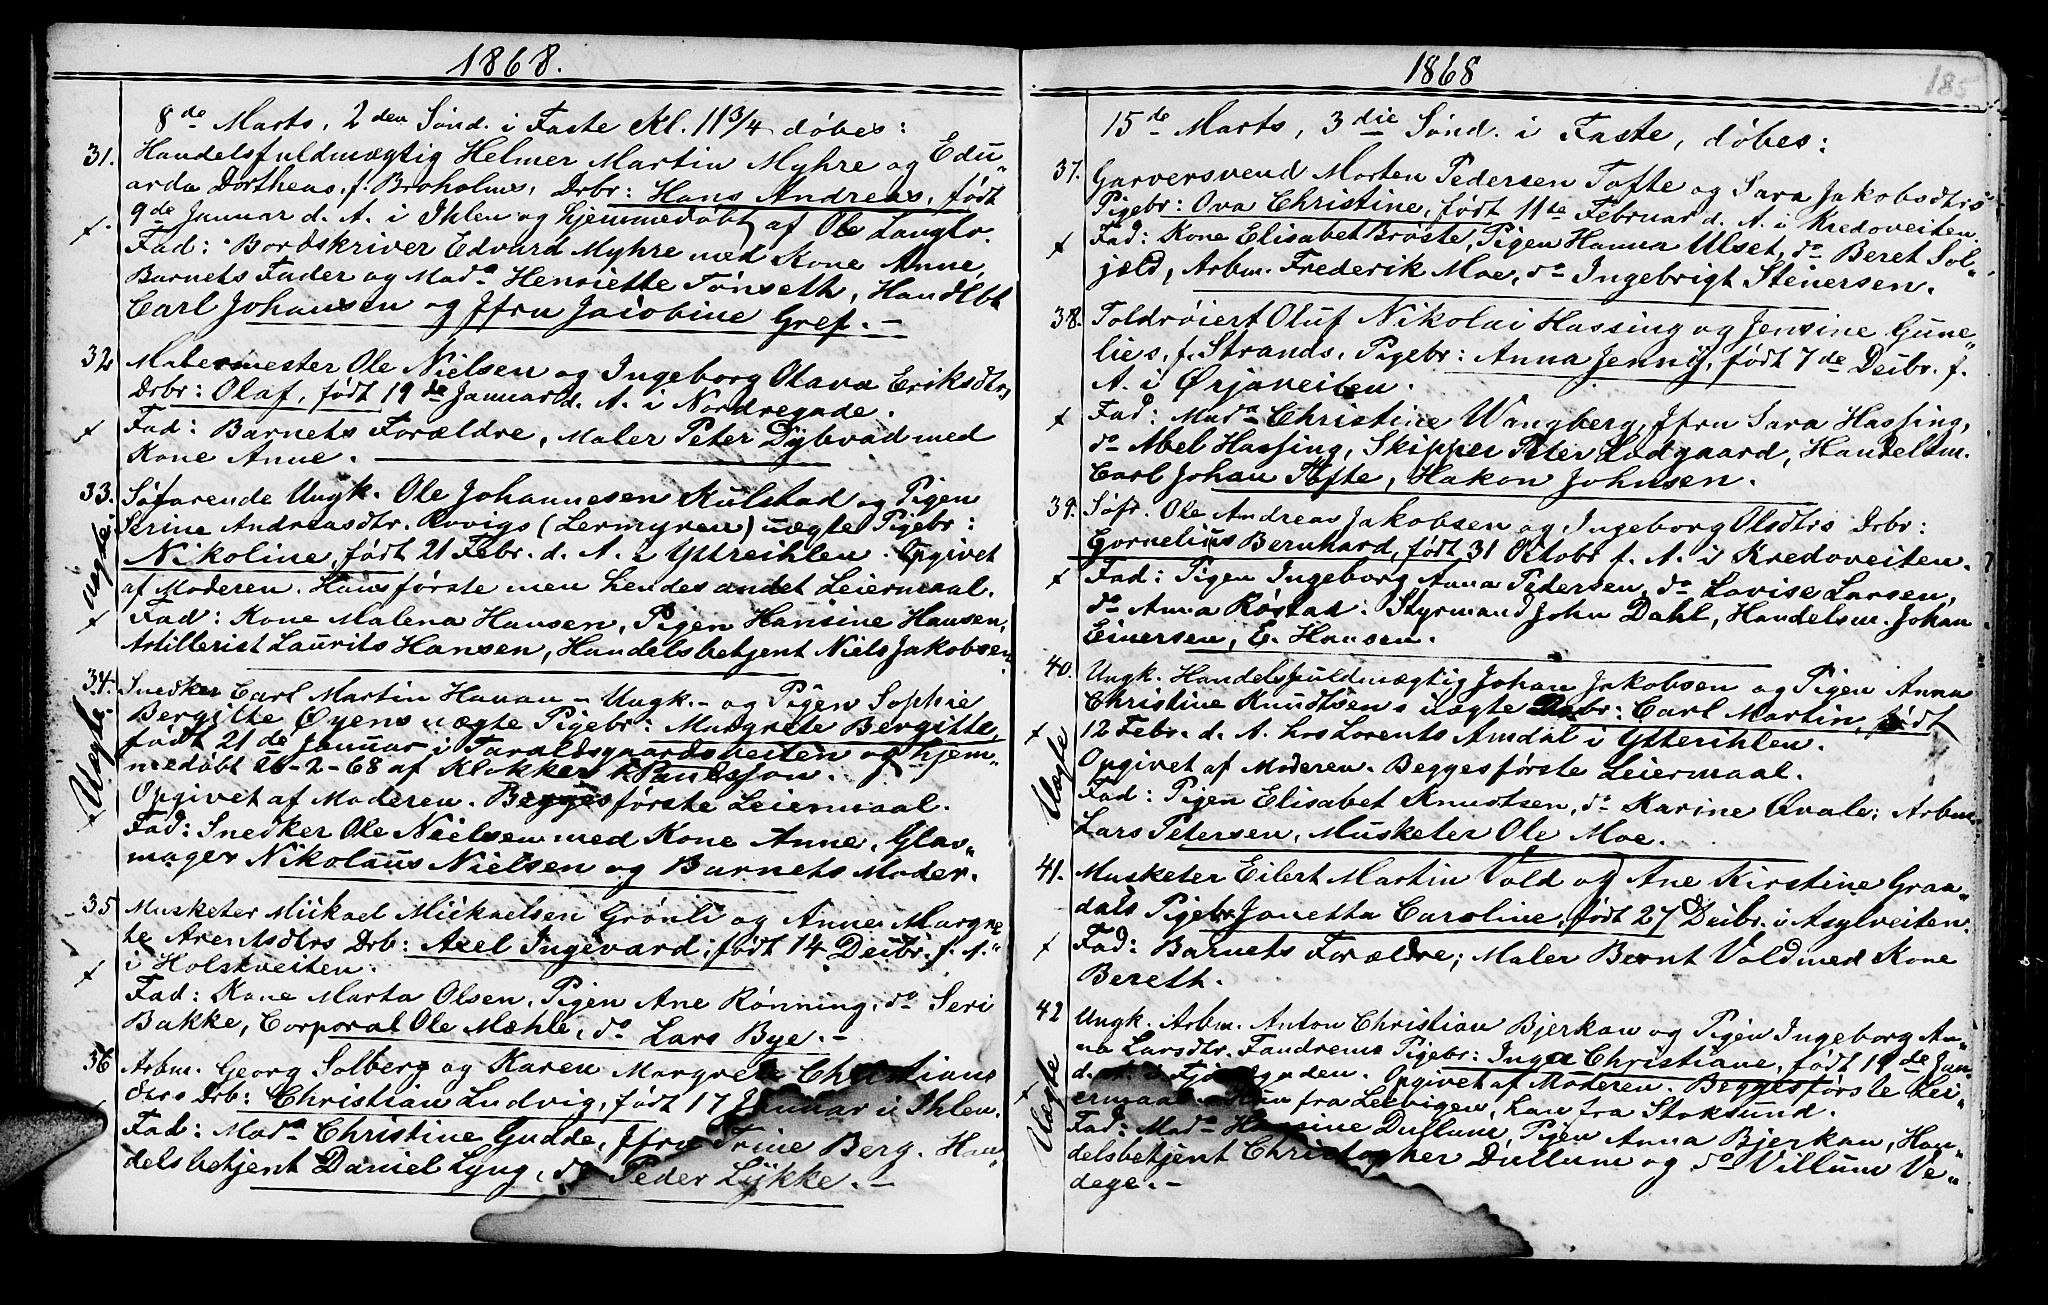 1868.
8de Marts, 2den Sønd. i Faste Kl. 11 3/4 døbes:
31. Handelsfuldmægtig Helmer Martin Myhre og Edu„
arda Dortheas, f. Broholms, Drbr: Hans Andreas, født
9de Januar d. A. i Ihlen og hjemmedøbt af Ole Langlo.
Fad: Bordskriver Edvard Myhre med Kone Anne,
Barnets Fader og Mada Henriette Tønseth, Handlbtj
Carl Johansen og Jfru Jacobine Gref. –
32 Malermester Ole Nielsen og Ingeborg Olava Eriksdtrs,
Drbr: Olaf, født 19de Januar d. A. i Nordregade.
Fad: Barnets Forældre, Maler Peter Dybvad med
Kone Anne.
33. Søfarende Ungk. Ole Johannesen Rulstad og Pigen
Serine Andreasdtr. Rovigs (Lermyren) uægte Pigebr:
Nikoline, født 21 Febr. d. A. i Ytreihlen. Opgivet
af Moderen. Hans første men hendes andet Leiermaal.
Fad: Kone Malena Hansen, Pigen Hansine Hansen,
Artillerist Laurits Hansen, Handelsbetjent Niels Jakobsen
uægte.
34. Snedker Carl Martin Hanan – Ungk. – og Pigen Sophie
Bergitte Øyens uægte Pigebr: Margrete Bergitte,
født 21de Januar i Taraldsgaardsveiten og hjem„
medøbt 26-2-68 af Klokker Paulsson.
Opgivet af Moderen. Begges første Leiermaal.
Fad: Snedker Ole Nielsen med Kone Anne, Glas„
mager Nikolaus Nielsen og Barnets Moder.
Uægte.
35 Musketer Mikael Mickaelsen Grønli og Anne Margre
te Arentsdtrs Drb: Axel Ingevard, født 14 Decbr. f. A.
i Holstveiten.
Fad: Kone Marta Olsen, Pigen Ane Rønning, do Seri
Bakke, Corporal Ole Mæhle, do Lars Bye. –
36 Arbm. Georg Solberg og Karen Margrete Christians
dtrs Drb: Christian Ludvig, født 17 Januar i Ihlen.
Fad: Mada Christine Gudde, Jfru Trine Berg, Han„
delsbetjent Daniel Lyng, do Peder Lykke. –
1868
185
15de Marts, 3die Sønd. i Faste, døbes:
37. Garversvend Morten Pedersen Tofte og Sara Jakobsdtrs
Pigebr: Ova Christine, født 11te Februar d. A. i Kredoveiten.
Fad: Kone Elisabet Brøste, Pigen Hanna Ulset, do Beret Sol„
jæld, Arbm. Frederik Moe, do Ingebrigt Steuersen.
38. Toldrøiert Oluf Nikolai Hassing og Jensine Gune„
lies, f. Strands, Pigebr: Anna Jenny, født 7de Decbr. f.
A. i Ørjaveiten.
Fad: Mada Christine Wangberg, Jfru Sara Hassing,
do Abel Hassing, Skipper Peter Lodgaard, Handelsm.
Carl Johan Tofte, Hakon Johnsen.
39. Søfr. Ole Andreas Jakobsen og Ingeborg Olsdtrs Drbr:
Cornelius Bernhard, født 31 Octobr f. A. i Kredoveiten.
Fad: Pigen Ingeborg Anna Pedersen, do Lovise Larsen,
do Anna Røstad. Styrmand John Dahl, Handelsm. Johan
Einersen, E. Hansen.
40. Ungk. Handelsfuldmægtig Johan Jakobsen og Pigen Anna
Christine Knudtsens uægte Drbr: Carl Martin, født
12 Febr. d. A. hos Lorents Amdal i Ytterihlen.
Opgivet af Moderen. Begges første Leiermaal.
Fad: Pigen Elisabet Knudtsen, do Karine Qvale, Arbm.
Lars Petersen, Musketer Ole Moe.
Uægte
41. Musketer Eilert Martin Vold og Ane Kirstine Graa„
dals Pigebr Janetta Caroline, født 27 Decbr. i Asylveiten.
Fad: Barnets Forældre; Maler Bernt Vold med Kone
Bereth.
42 Ungk. Arbm. Anton Christian Bjerkan og Pigen Ingeborg An„
na Larsdtr. Fandrems Pigebr: Inga Christiane, født 19de Jan„
d. A. i Opgivet af Moderen. Begges første Lei„
ermaal. Han fra Leevigen, hun fra Stoksund.
Fad: Mada Hansine Dullum, Pigen Anna Bjerkan, Han„
delsbetjent Christopher Dullum og do Villum Ve„
dege. –
Uægte